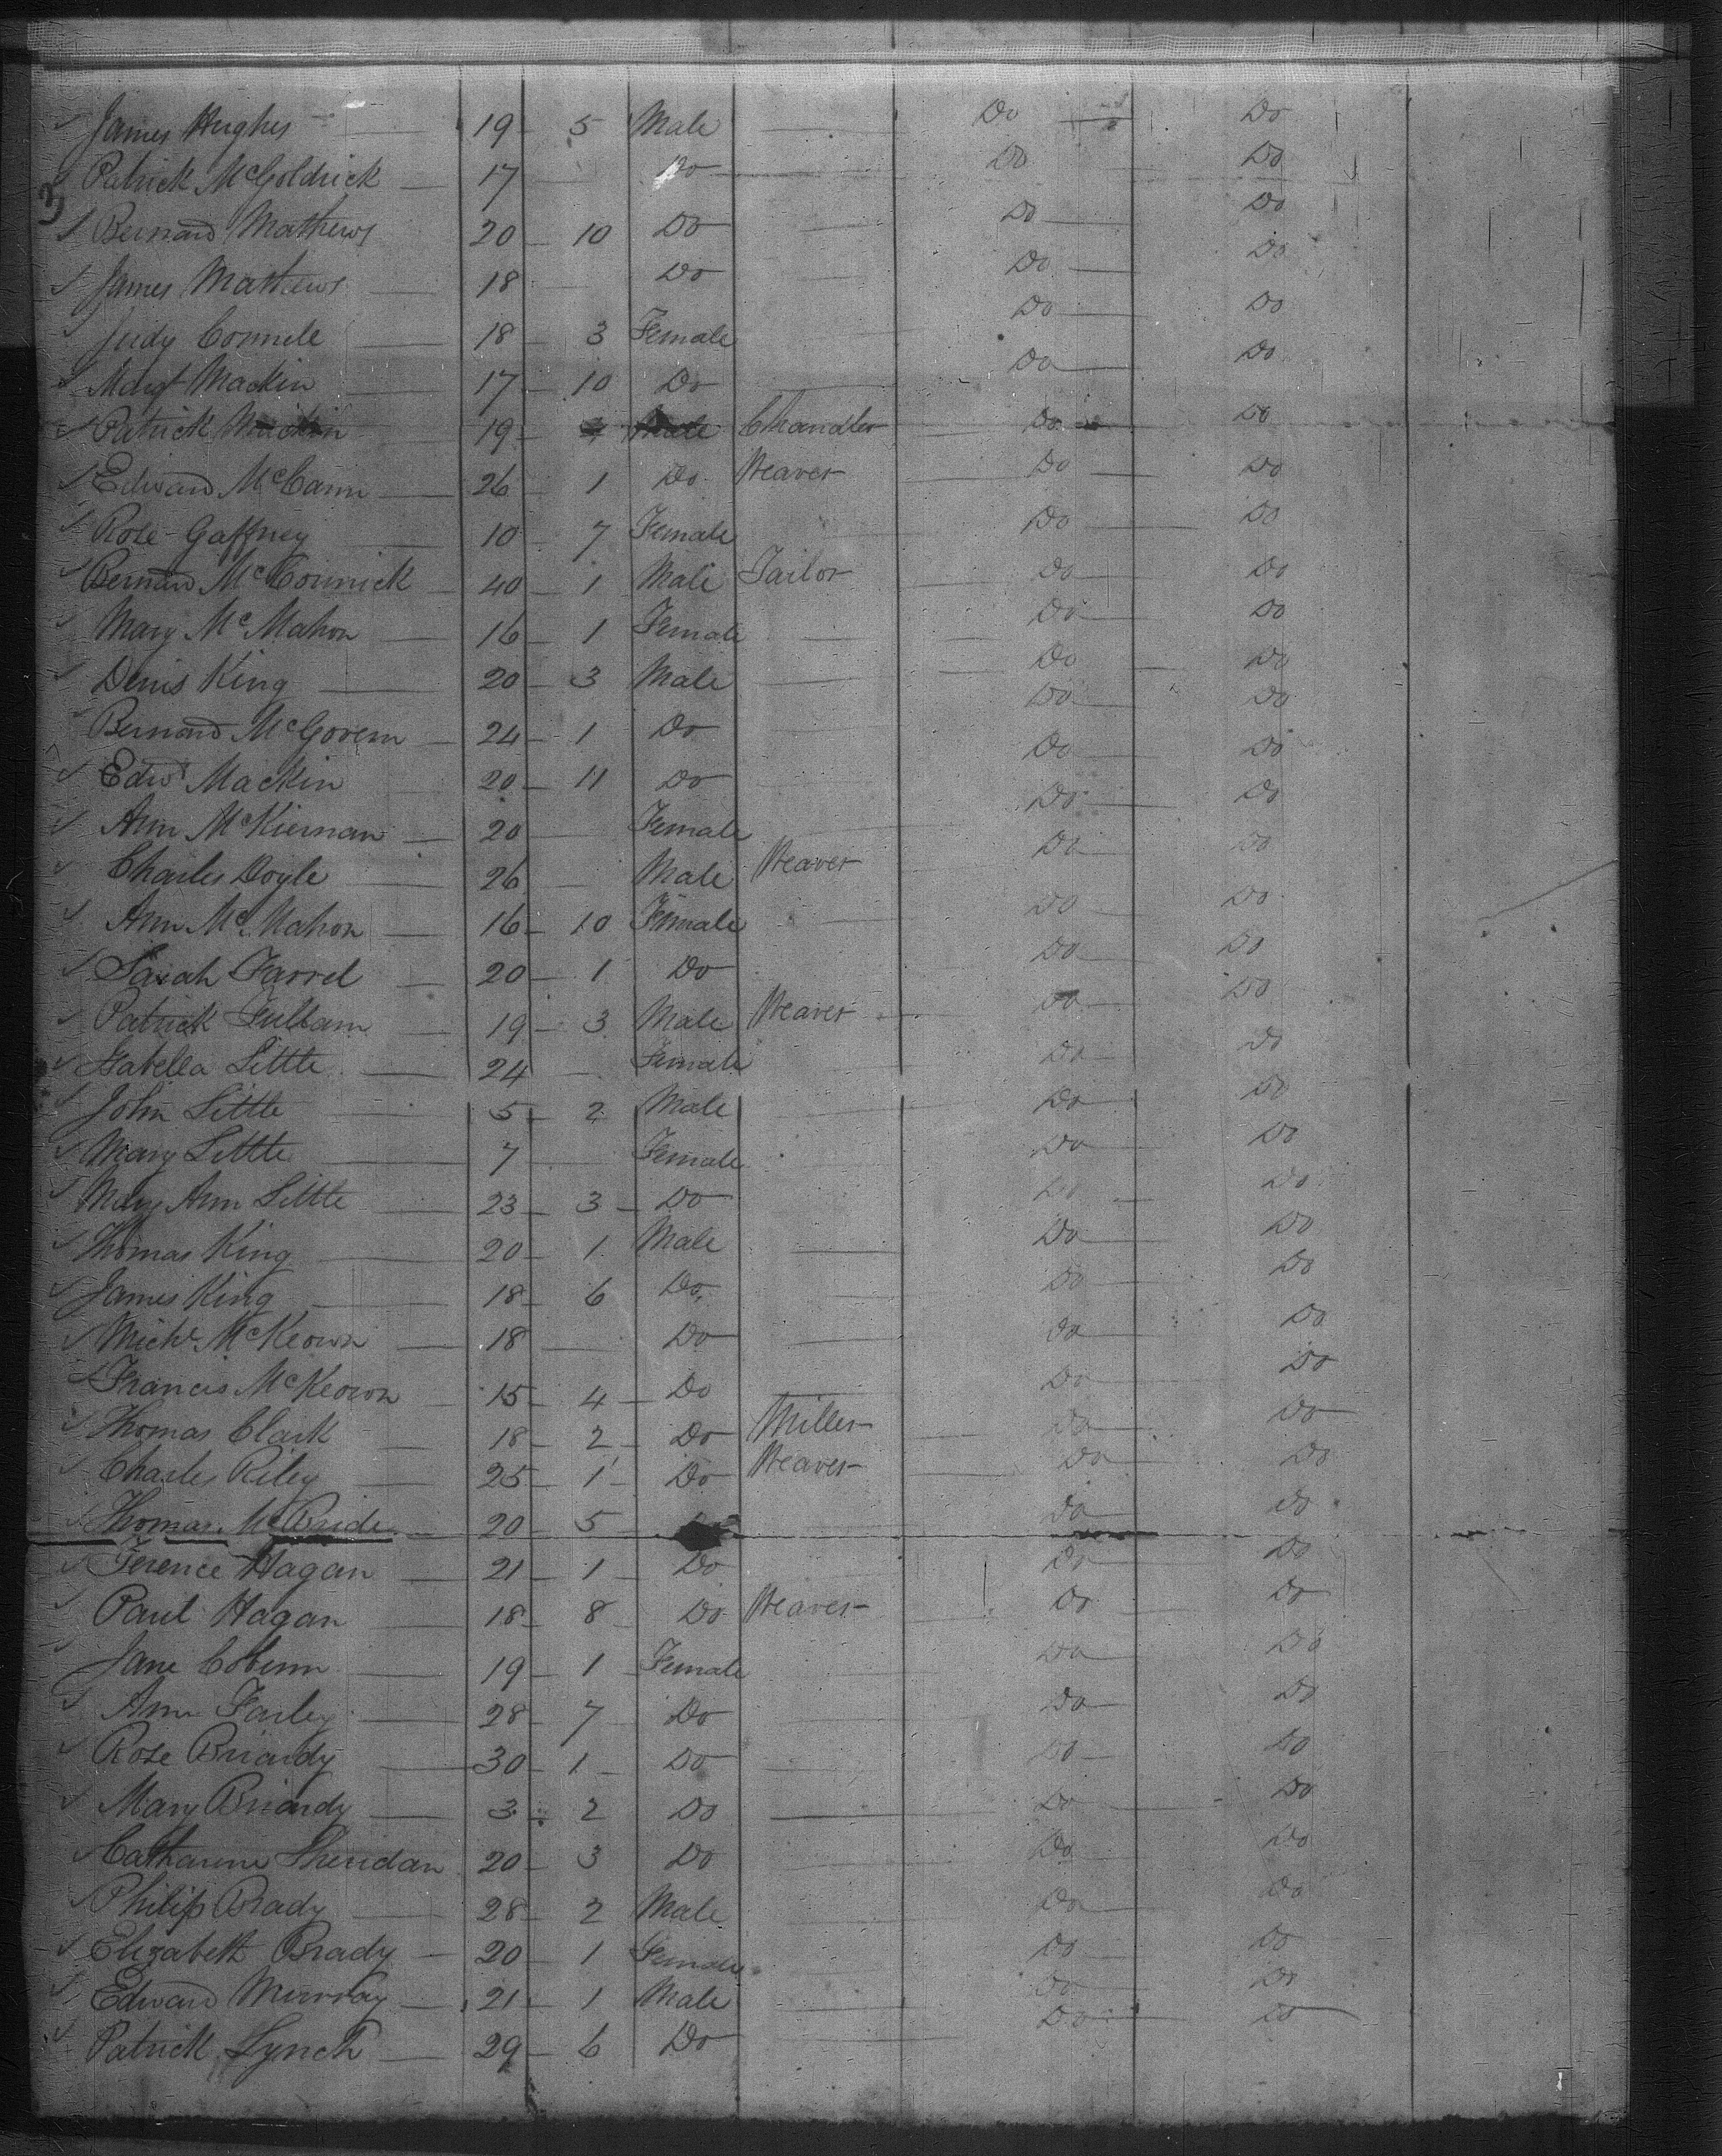 James Hughes 19 5 Male Do Do
3 Patrick McGoldrick 17 Do Do Do
Bernard Mathews 20 10 Do Do Do
James Mathews 18 Do Do Do
Judy Connele 18 3 Female Do Do
Margt Mackin 17 10 Do Do Do
Patrick Mackin 19 Male Chandler Do Do
Edward McCann 26 1 Do Weaver Do Do
Rose Gaffney 10 7 Female Do Do
Bernard McCormick 40 1 Male Tailor Do Do
Mary McMahon 16 1 Female Do Do
Denis King 20 3 Male Do Do
Bernard McGovern 24 1 Do Do Do
Edwd Mackin 20 11 Do Do Do
Ann McKiernan 20 Female Do Do
Charles Doyle 26 Male Weaver Do Do
Ann McMahon 16 10 Female Do Do
Sarah Farrel 20 1 Do Do Do
Patrick Fullam 19 3 Male Weaver Do Do
Isabella Little 24 Female Do Do
John Little 5 2 Male Do Do
Mary Little 7 Female Do Do
Mary Ann Little 23 3 Do Do Do
Thomas King 20 1 Male Do Do
James King 18 6 Do Do Do
Michl McKeown 18 Do Do Do
Francis McKeown 15 4 Do Do Do
Thomas Clark 18 2 Do Miller Do Do
Charles Riley 25 1 Do Weaver Do Do
Thomas McBride 20 5 Do Do
Terence Hagan 21 1 Do Do Do
Paul Hagan 18 8 Do Weaver Do Do
Jane 19 1 Female Do Do
Ann Farley 28 7 Do Do Do
Rose Briardy 30 1 Do Do Do
Mary Briardy 3 2 Do Do Do
Catharine Sheridan 20 3 Do Do Do
Philip Brady 28 2 Male Do Do
Elizabeth Brady 20 1 Female Do Do
Edward Murray 21 1 Male Do Do
Patrick Lynch 29 6 Do Do Do